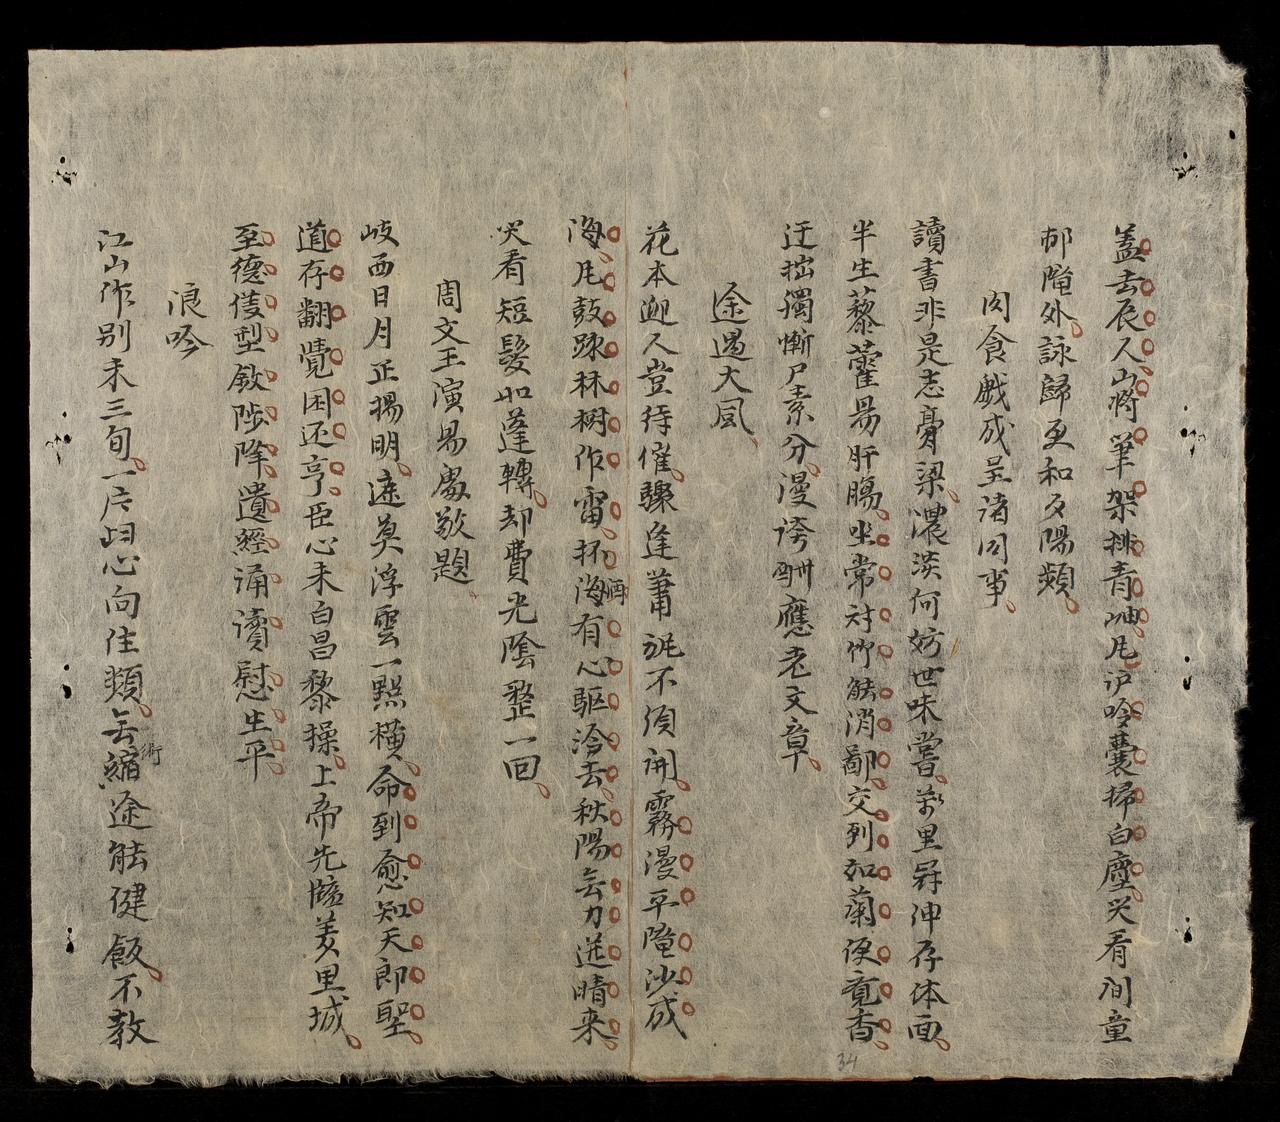 蓋去辰人山將筆架排青岫凡沪吟囊掃白塵笑看间童
邨隴外詠歸更和夕陽頻
肉食戯成呈诸同事
讀書非是志膏粱濃淡何妨世味嘗萬里冠紳存体面
半生藜藿昜肝腸坐常对竹能消鄙交到如蘭便覓香
迂拙獨慚尸素分漫誇酬應老文章
途遇大風
花本迎人豈待催驟逢蕭瑟不須開霧漫平隴沙成
海凡鼓踈林樹作雷抔海有心驅冷去秋陽无力送晴来
酒
笑看短髮如蓬轉却費光陰整一回
周文王演易處敬題
岐西日月正揚明遮莫浮雲一點橫命到愈知天即聖
道存翻覺困还亨臣心未白昌黎操上帝先臨羑里城
至德儀型欽陟降遺經诵讀慰生平
浪吟
江山作别未三旬一片歸心向住頻无縮途能健飯不教
術